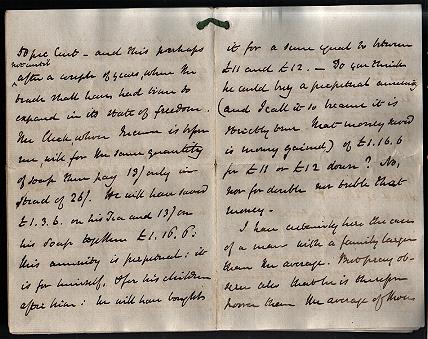 50 per Cent – and this perhaps
not until
after a couple of years, when the
trade shall have had time to
expand in its state of freedom.
The Clerk whose Income is before
me will for the same quantity
of soap then pay 13/ only in-
stead of 26/. He will have saved
£1.3.6. on his Tea and 13/ on
his Soap together £1.16.6:
this annuity is perpetual: it
is for himself, & for his children
after him: he will have bought
it for a sum equal to between
£11 and £12. – Do you think
he could buy a perpetual annuity
(and I call it so because it is
strictly true that money saved
is money gained) of £1.16.6
for £11 or £12 down? No,
nor for double nor treble that
money. –
I have certainly here the case
of a man with a family larger
than the average. But pray ob-
serve also that he is therefore
poorer than the average of those